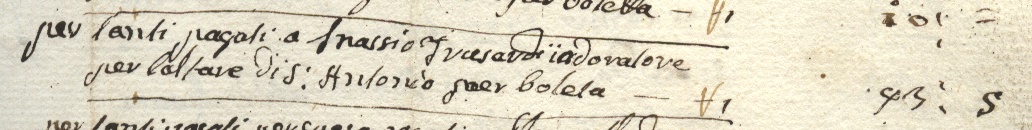 per boletta — V, 10: =
per tanti pagati a Gnassio Trusardi indoratore
per l'altare di S: Antonio per boleta — V, 43: 5
per tanti pagati per